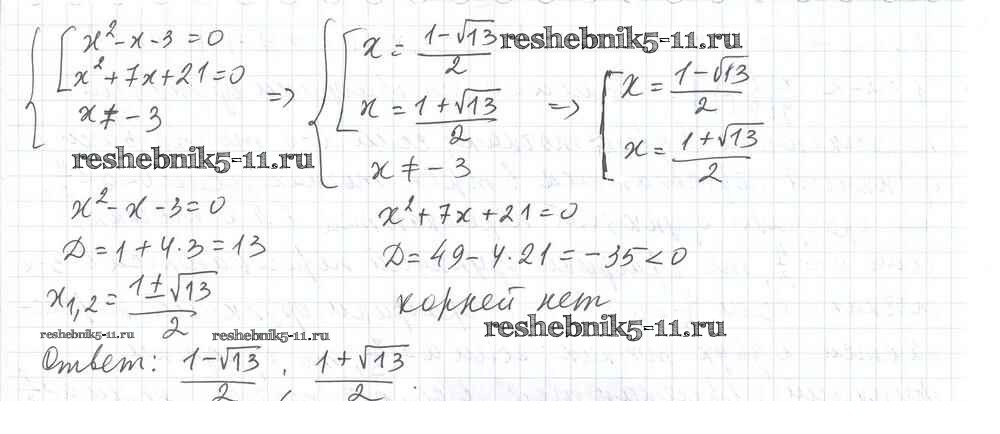 { [ x² - x - 3 = 0
x² + 7x + 21 = 0
x ≠ - 3
=> { [ x = (1-√13)/2
x = (1+√13)/2
x ≠ - 3
=> [ x = (1-√13)/2
x = (1+√13)/2
reshebnik5-11.ru
reshebnik5-11.ru
x² - x - 3 = 0
D = 1 + 4·3 = 13
x₁,₂ = (1±√13)/2
x² + 7x + 21 = 0
D = 49 - 4·21 = -35 < 0
корней нет
reshebnik5-11.ru
reshebnik5-11.ru
reshebnik5-11.ru
Ответ: (1-√13)/2 ; (1+√13)/2.